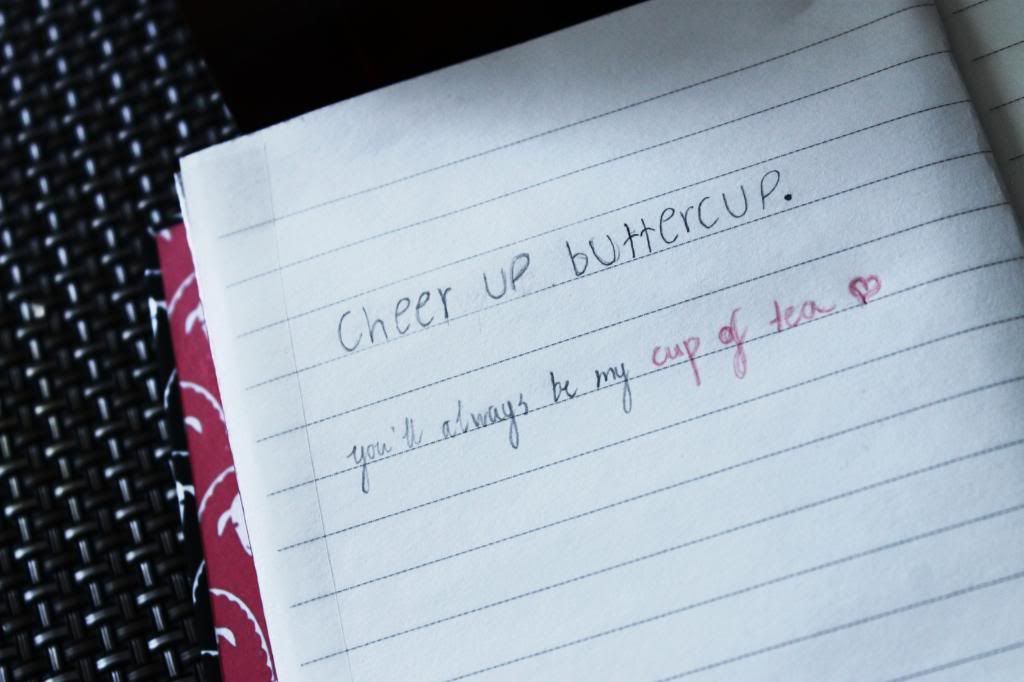 Cheer UP buttercUP.
you'll always be my cup of tea